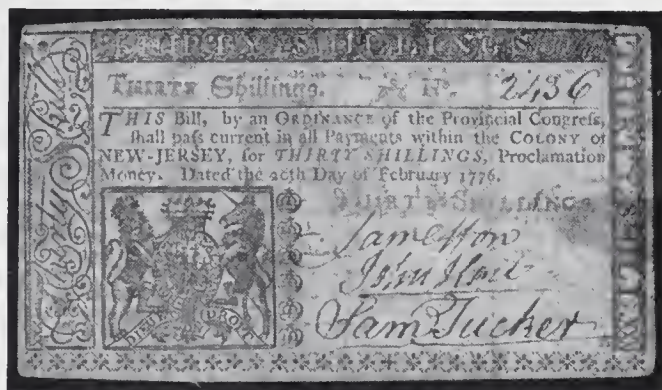 THIRTY SHILLINGS
THIRTY Shillings. No. 2436
THIS Bill, by an ORDINANCE of the Provincial Congreſs,
ſhall paſs current in all Payments within the COLONY of
NEW-JERSEY, for THIRTY SHILLINGS, Proclamation
Money. Dated the 20th Day of February 1776.
THIRTY SHILLINGS.
John Hart
Sam Tucker
DIEU ET MON DROIT
Thirty